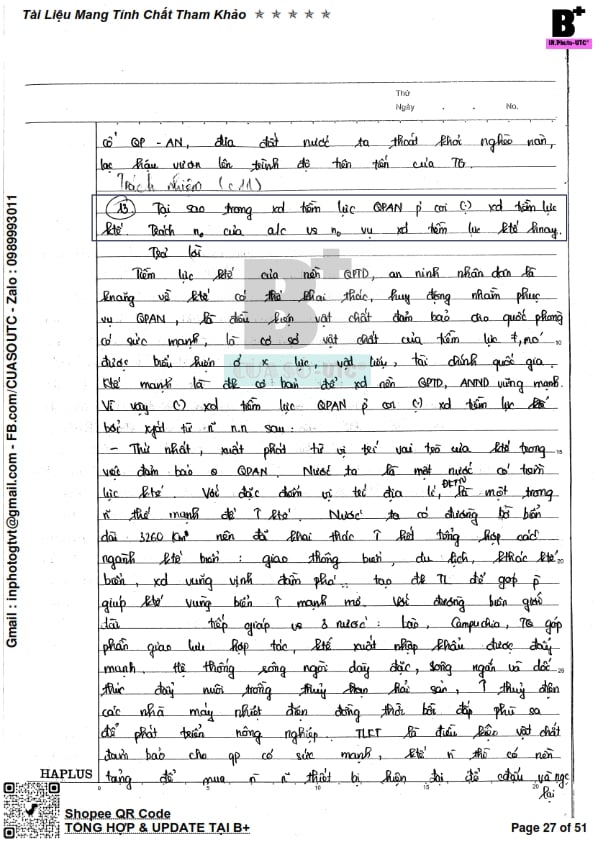 Tài Liệu Mang Tính Chất Tham Khảo ★ ★ ★ ★ ★
B+
IN.Photo-UTC*
Thứ
Ngày . . No.
có QP - AN, đưa đất nước ta thoát khỏi nghèo nàn,
lạc hậu vươn lên trình độ tiên tiến của TG.
Trách nhiệm (c11)
13. Tại sao trong xd tiềm lực QPAN p coi (:) xd tiềm lực
ktế. Trách n₀ của a/c vs n₀ vụ xd tiềm lực ktế hnay.
Trả lời
Tiềm lực ktế của nền QPTD, an ninh nhân dân là
knăng về ktế có thể khai thác, huy động nhằm phục
vụ QPAN, là điều kiện vật chất đảm bảo cho quốc phòng
có sức mạnh, là cơ sở vật chất của tiềm lực #, nó
được biểu hiện ở lực, vật liệu, tài chính quốc gia.
Ktế mạnh là đk cơ bản để xd nền QPTD, ANND vững mạnh.
Vì vậy (:) xd tiềm lực QPAN p coi (:) xd tiềm lực ktế
bởi xphát từ n n.n sau:
- Thứ nhất, xuất phát từ vị trí vai trò của ktế trong
việc đảm bảo QPAN. Nước ta là một nước có tiềm
lực ktế. Với đặc điểm vị trí địa lí, ĐKTN là một trong
n thế mạnh để ↑ ktế. Nước ta có đường bờ biển
dài 3260 km nên đã khai thác ↑ kết tổng hợp các
ngành ktế biển: giao thông biển, du lịch, kthác ktế
biển, xd vũng vịnh đầm phá.. tạo đk TL để góp p
giúp ktế vùng biển ↑ mạnh mẽ. Với đường biên giới
dài tiếp giáp vs 3 nước: Lào, Campuchia, TQ góp
phần giao lưu hợp tác, ktế xuất nhập khẩu được đẩy
mạnh. Hệ thống sông ngòi dày đặc, sông ngắn và dốc
thúc đẩy nuôi trồng thủy hải sản, ↑ thủy điện
các nhà máy nhiệt điện đồng thời bồi đắp phù sa
để phát triển nông nghiệp. TLKT là điều kiện vật chất
đảm bảo cho qp có sức mạnh, ktế ↑ thì có nền
tảng để mua n n thiết bị hiện đại để cđấu và ngc
lại
HAPLUS
0 5 10 15 20
Gmail : inphotogtvt@gmail.com - FB.com/CUASOUTC - Zalo : 0989993011
B+
CUASOUTC*
Shopee QR Code
TỔNG HỢP & UPDATE TẠI B+
Page 27 of 51